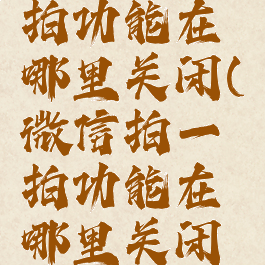 拍功能在
哪里关闭(
微信拍一
拍功能在
哪里关闭